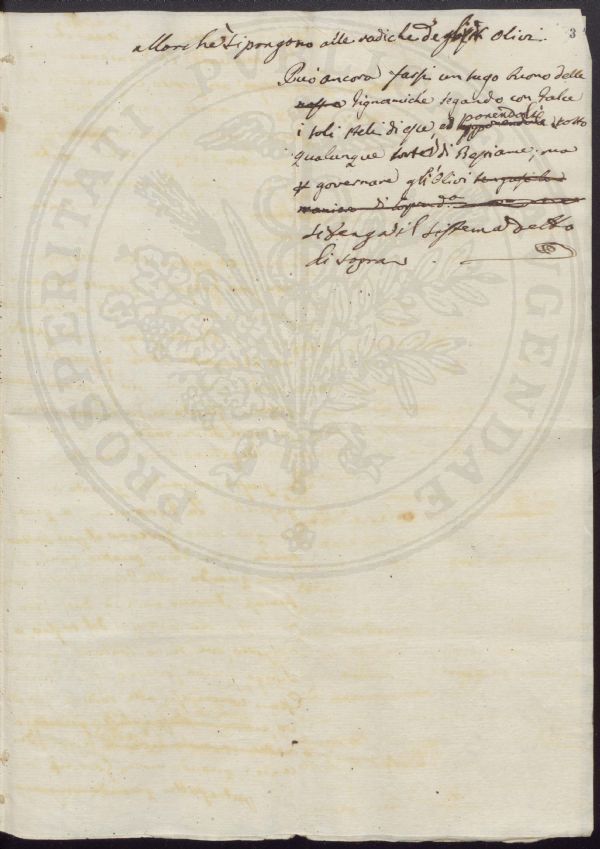 3
allorchè si pongono alle radiche degli Olivi.
Può ancora farsi un sugo buono delle
gignamiche segando con falce
i soli steli di esse, ed ponendole sotto
qualunque sorte di Bestiame; ma
governare gli Olivi
si tenga il sistema detto
di sopra
PROSPERITATI PVBLICAE AVGENDAE